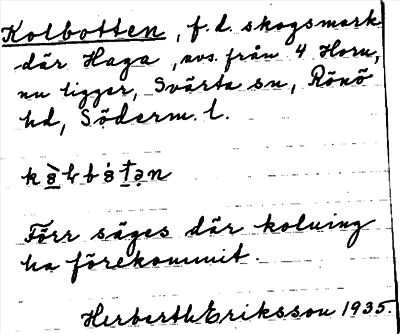 Kolbotten, f.d. skogsmark
där Haga, avs. från 4 Horn,
nu ligger, Svärta sn, Rönö
hd, Söderm. l.
Förr säges där kolning
ha förekommit.
Herberth Eriksson 1935.